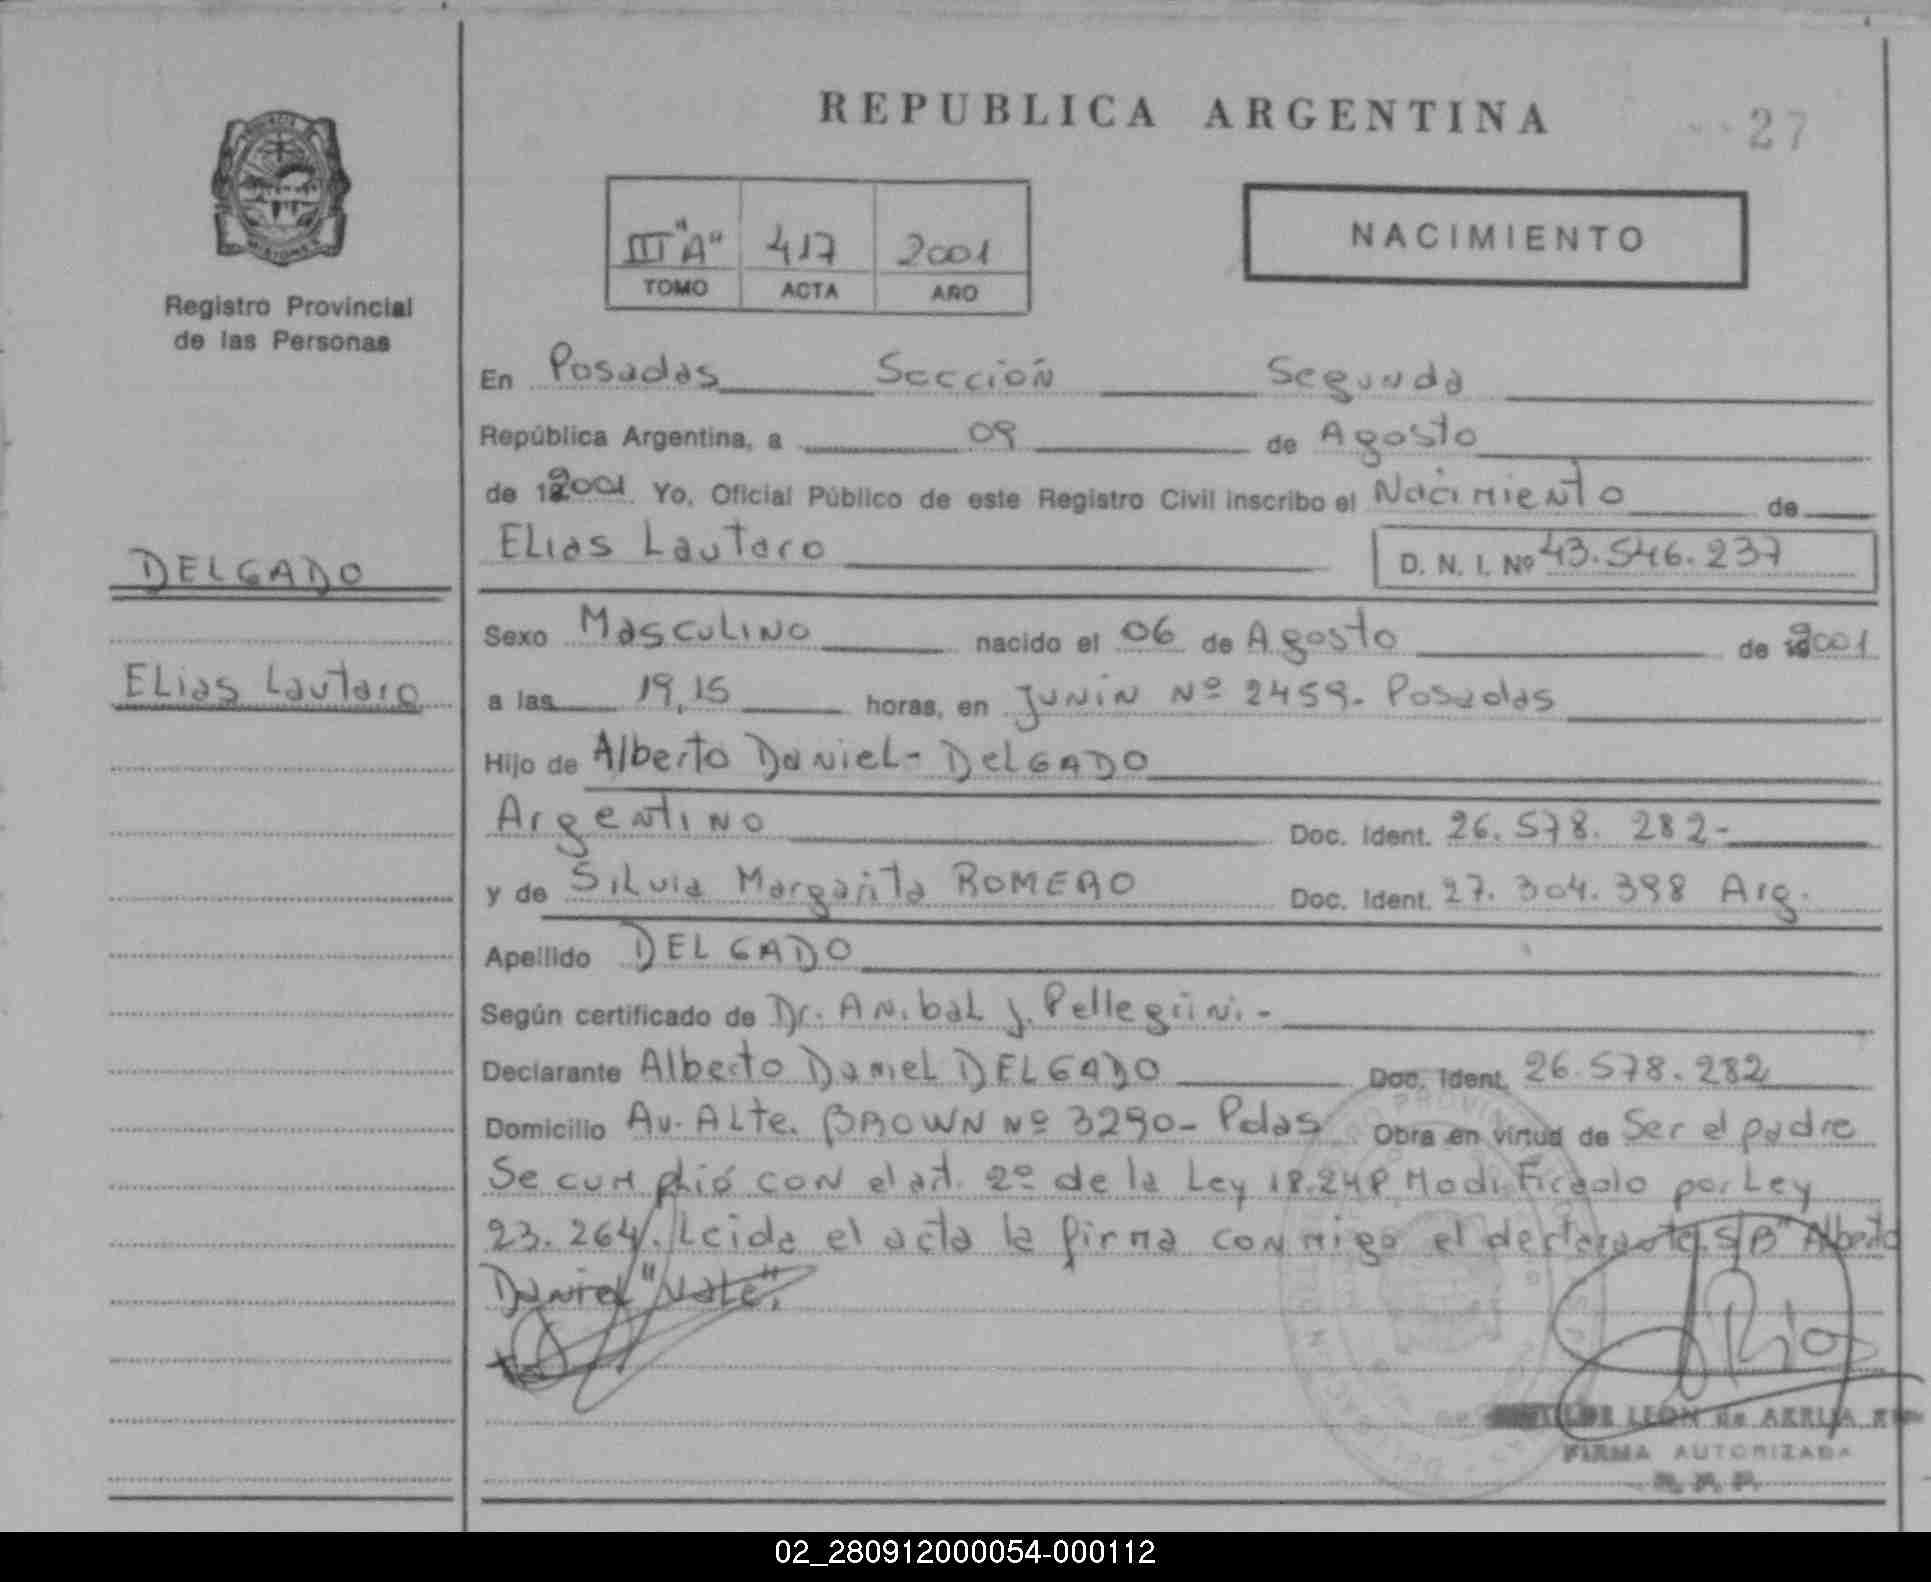 REPUBLICA ARGENTINA
27
Registro Provincial
de las Personas
III "A" 417 2001
TOMO ACTA AÑO
NACIMIENTO
En Posadas Sección Segunda
República Argentina, a 09 de Agosto
de 2001 Yo, Oficial Público de este Registro Civil inscribo el Nacimiento de
Elias Lautaro D. N. I. Nº 43.546.237
DELGADO
Elias Lautaro
Sexo Masculino nacido el 06 de Agosto de 2001
a las 19,15 horas, en Junín Nº 2459. Posadas
Hijo de Alberto Daniel - DELGADO
Argentino Doc. Ident. 26.578.282-
y de Silvia Margarita ROMERO Doc. Ident. 27.304.398 Arg.
Apellido DELGADO
Según certificado de Dr. Anibal J. Pellegrini.-
Declarante Alberto Daniel DELGADO Doc. Ident. 26.578.282
Domicilio Av. Alte. BROWN Nº 3290- Pdas Obra en virtud de Ser el padre
Se cumplió con el art. 2º de la Ley 18.248 Modificado por Ley
23.264. Leida el acta la firma conmigo el declarante. S/B "Alberto
Daniel "Vale".
Rios
LEON de ARRUA
FIRMA AUTORIZADA
02_280912000054-000112